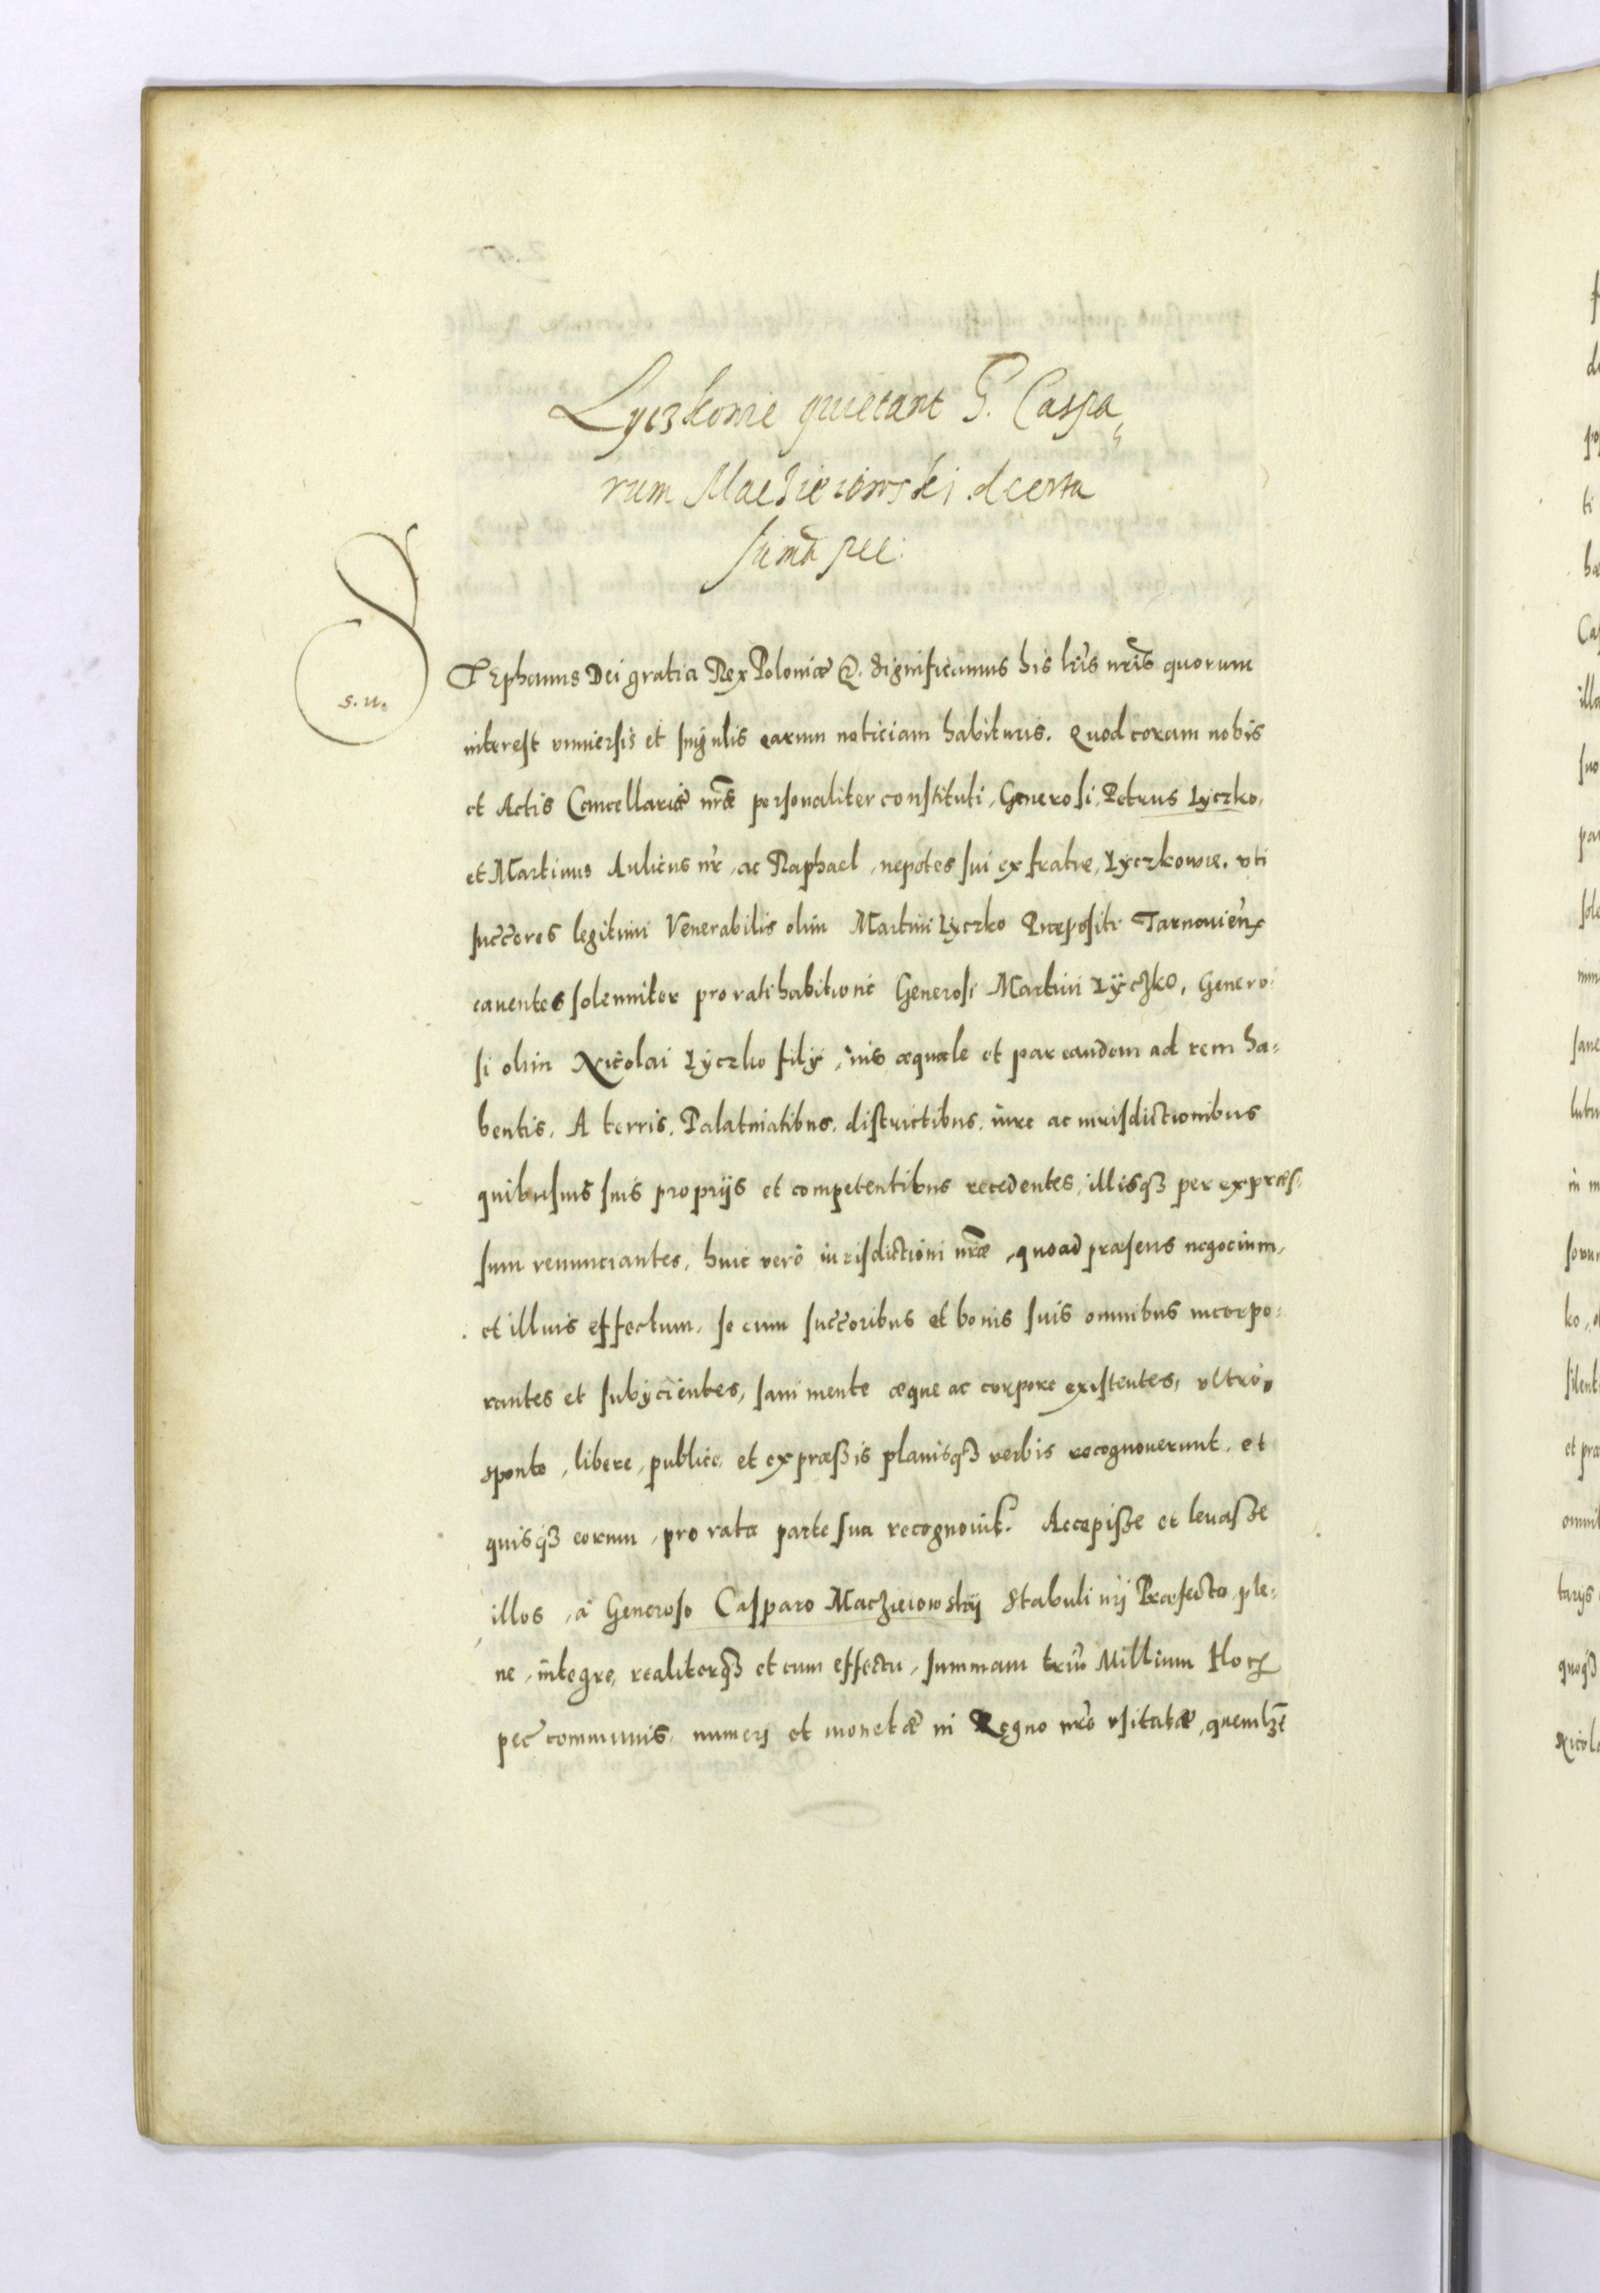 Lyczkowie quietant G. Caspa
rum Maczieiowski de certa
sūma pec:
s. u.
STephanus Dei gratia Rex Poloniæ &. Significamus his lr̃is nr̃is quorum
interest vniuersis et singulis earum noticiam habituris. Quod coram nobis
et Actis Cancellariæ nr̃æ personaliter constituti, Generosi, Petrus Lyczko,
et Martinus Aulicus nr̃, ac Raphael, nepotes sui ex fratre, Lyczkowie, vti
succ̃ores legitimi Venerabilis olim Martini Lyczko Præpositi Tarnouieñ
cauentes solenniter pro ratihabitione Generosi Martini Lyczko, Genero-
si olim Nicolai Lyczko filij, ius æquale et par eandem ad rem ha-
bentis, A terris, Palatinatibus, districtibus, iure ac iurisdictionibus
quibusuis suis proprijs et competentibus recedentes, illisqз per expræs-
sum renunciantes, huic verò iurisdictioni nr̃æ, quoad præsens negocium,
et illius effectum, se cum succ̃oribus et bonis suis omnibus incorpo-
rantes et subÿcientes, sani mente æque ac corpore existentes, vltrò,
sponte, libere, publice, et expræssis planisqз verbis recognouerunt, et
quisqз eorum, pro rata parte sua recognouit. Accepisse et leuasse
illos, à Generoso Casparo Maczieiowskij Stabuli nr̃i Præfecto, ple-
ne, integre, realiterqз et cum effectu, summam triũ Millium Floꝝ
pec̃ communis, numeri et monetæ in Regno nr̃o vsitatæ, quemlзt